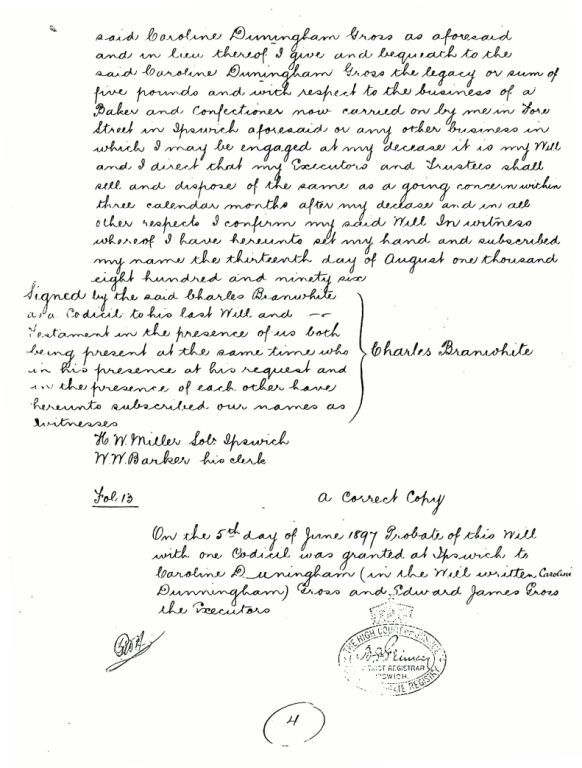 said Caroline Duningham Gross as aforesaid
and in lieu thereof I give and bequeath to the
said Caroline Duningham Gross the legacy or sum of
five pounds and with respect to the business of a
Baker and Confectioner now carried on by me in Fore
Street in Ipswich aforesaid or any other business in
which I may be engaged at my decease it is my Will
and I direct that my Executors and Trustees shall
sell and dispose of the same as a going concern within
three calendar months after my decease and in all
other respects I confirm my said Will In witness
whereof I have hereunto set my hand and subscribed
my name the thirteenth day of August one thousand
eight hundred and ninety six
Signed by the said Charles Branwhite
as a Codicil to his last Will and
Testament in the presence of us both
being present at the same time who
in his presence at his request and
in the presence of each other have
hereunto subscribed our names as
Witnesses
Charles Branwhite
H. W. Miller Solr Ipswich
W. W. Barker his clerk
Fol. 13
A Correct Copy
On the 5th day of June 1897 Probate of this Will
with one Codicil was granted at Ipswich to
Caroline D uningham (in the Will written Caroline
Dunningham) Gross and Edward James Gross
the Executors
THE HIGH COURT OF JUSTICE
DISTRICT REGISTRAR
IPSWICH
REGISTRY
4